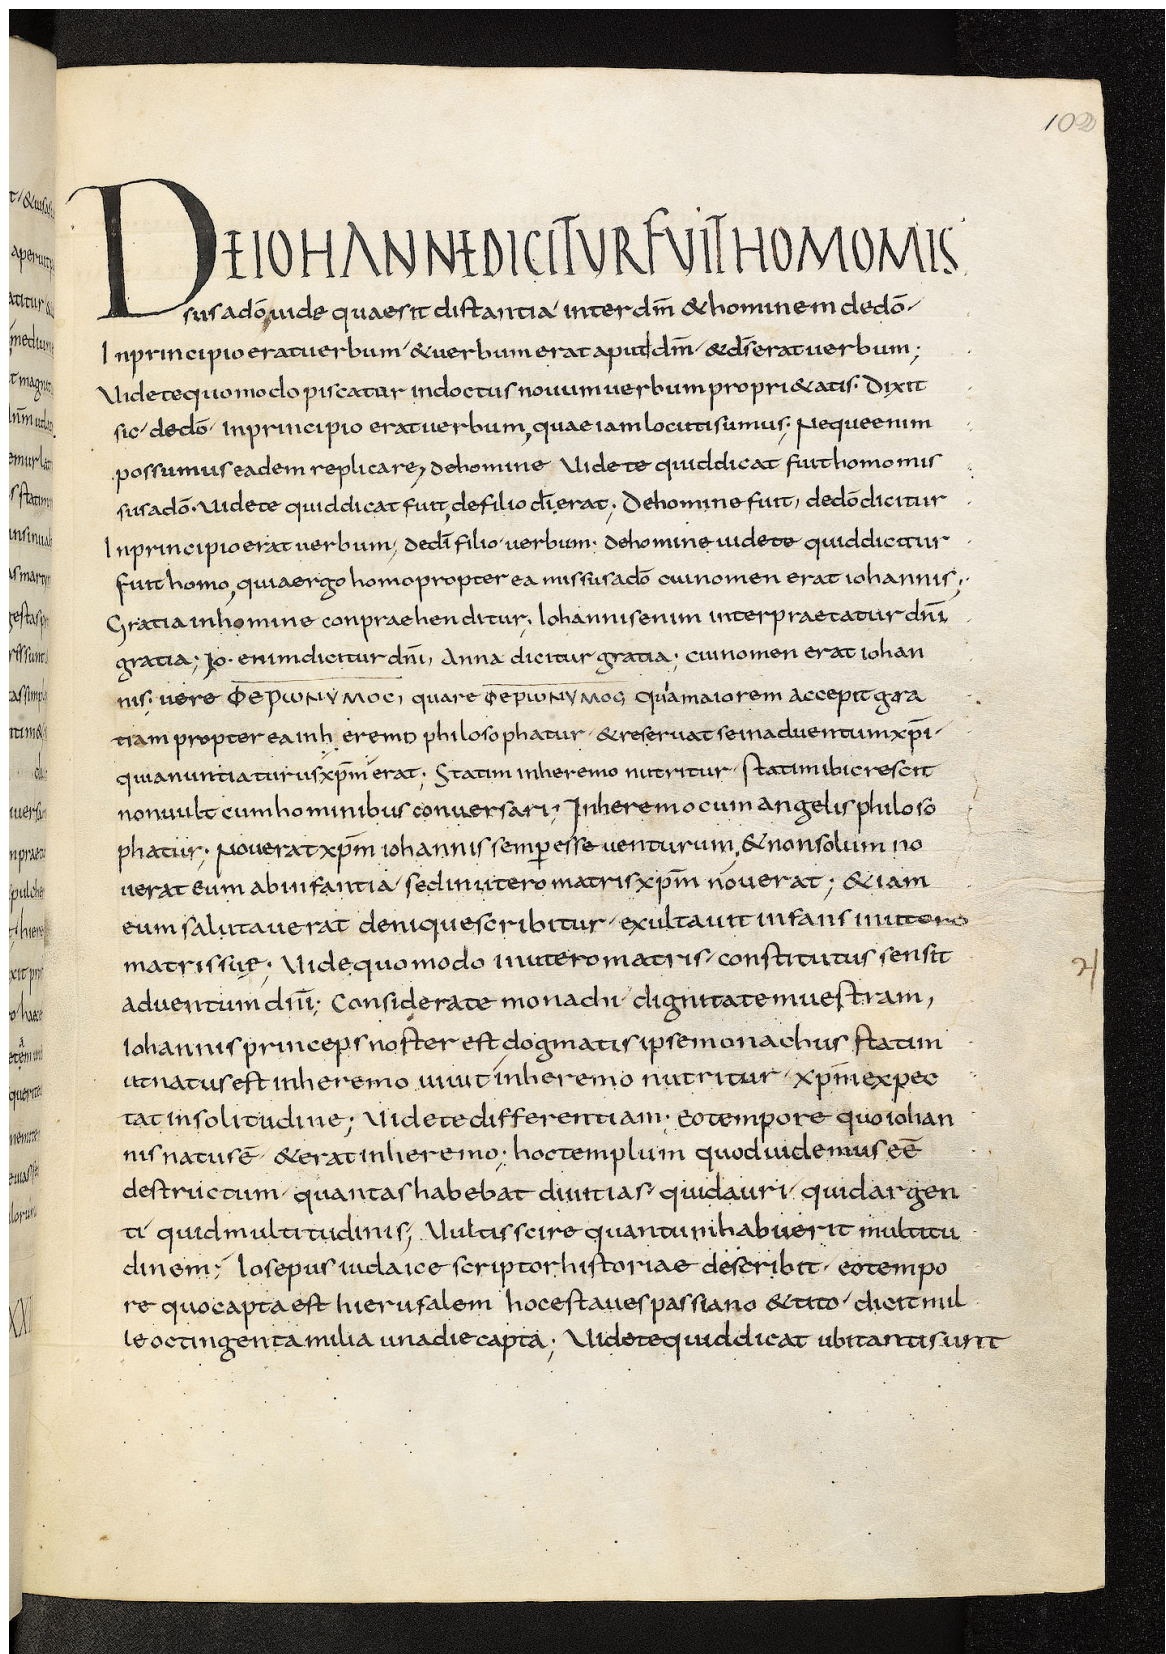 102
DE IOHANNE DICITUR FUIT HOMO MIS
sus adō, uide quae sit distantia inter dm̄ & hominem de dō.
In principio erat uerbum & uerbum erat aput dm̄ & ds̄ erat uerbum;
Uidete quomodo piscatur indoctus nouum uerbum propri&atis. Dixit
sic de dō In principio erat uerbum, quae iam locuti sumus; Neque enim
possumus eadem replicare, de homine Uidete quid dicat fuit homo mis
sus a dō. Uidete quid dicat fuit, de filio dī erat; De homine fuit, de dō dicitur
In principio erat uerbum, de dī filio uerbum. de homine uidete quid dicitur
fuit homo, quia ergo homo propterea missus a dō cui nomen erat iohannis;
Gratia in homine conpraehenditur; Iohannis enim interpraetatur dnī
gratia; Io. enim dicitur dnī, Anna dicitur gratia; cui nomen erat iohan
nis; uere ΦΕΡΩΝΥΜΟC, quare ΦΕΡΩΝΥΜΟC quia maiorem accepit gra
tiam propterea in h eremo philosophatur & reseruat se in aduentum xpī.
quia nuntiaturus xpm̄ erat; Statim in heremo nutritur. statim ibi crescit
non uult cum hominibus conuersari; In heremo cum angelis philoso
phatur; Nouerat xpm̄ iohannis semp esse uenturum, & non solum no
uerat eum ab infantia sed in utero matris xpm̄ nouerat; & iam
eum salutauerat denique scribitur. exultauit infans in utero
matris suę; Uide quomodo in utero matris constitutus sensit
aduentum dnī; Considerate monachi dignitatem uestram,
Iohannis princeps noster est dogmatis ipse monachus statim
ut natus est in heremo uiuit in heremo nutritur. xpm̄ expec
tat in solitudine; Uidete differentiam. Eo tempore quo iohan
nis natus ē & erat in heremo; hoc templum quod uidemus eē
destructum. quantas habebat diuitias. quid auri. quid argen
ti quid multitudinis; Uultis scire quantum habuerit multitu
dinem; Iosepus iudaice scriptor historiae describit. eo tempo
re quo capta est hierusalem hoc est a uespassiano & tito dicit mil
le octingenta milia una die capta; Uidete quid dicat ubi tanti sunt